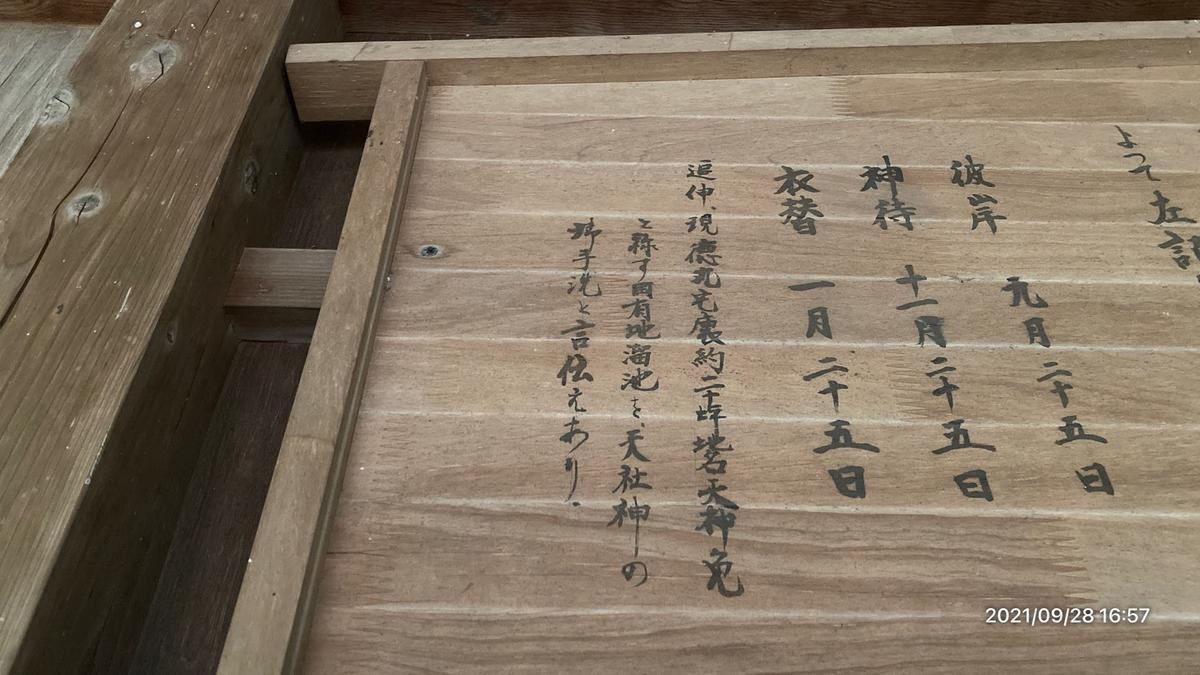 よって左記
彼岸 元月二十五日
神待 十一月二十五日
衣替 一月二十五日
追伸、現徳丸宅裏約二十坪地名天神免
と称す国有地溜池を、天社神の
御手洗と言伝えあり。
2021/09/28 16:57